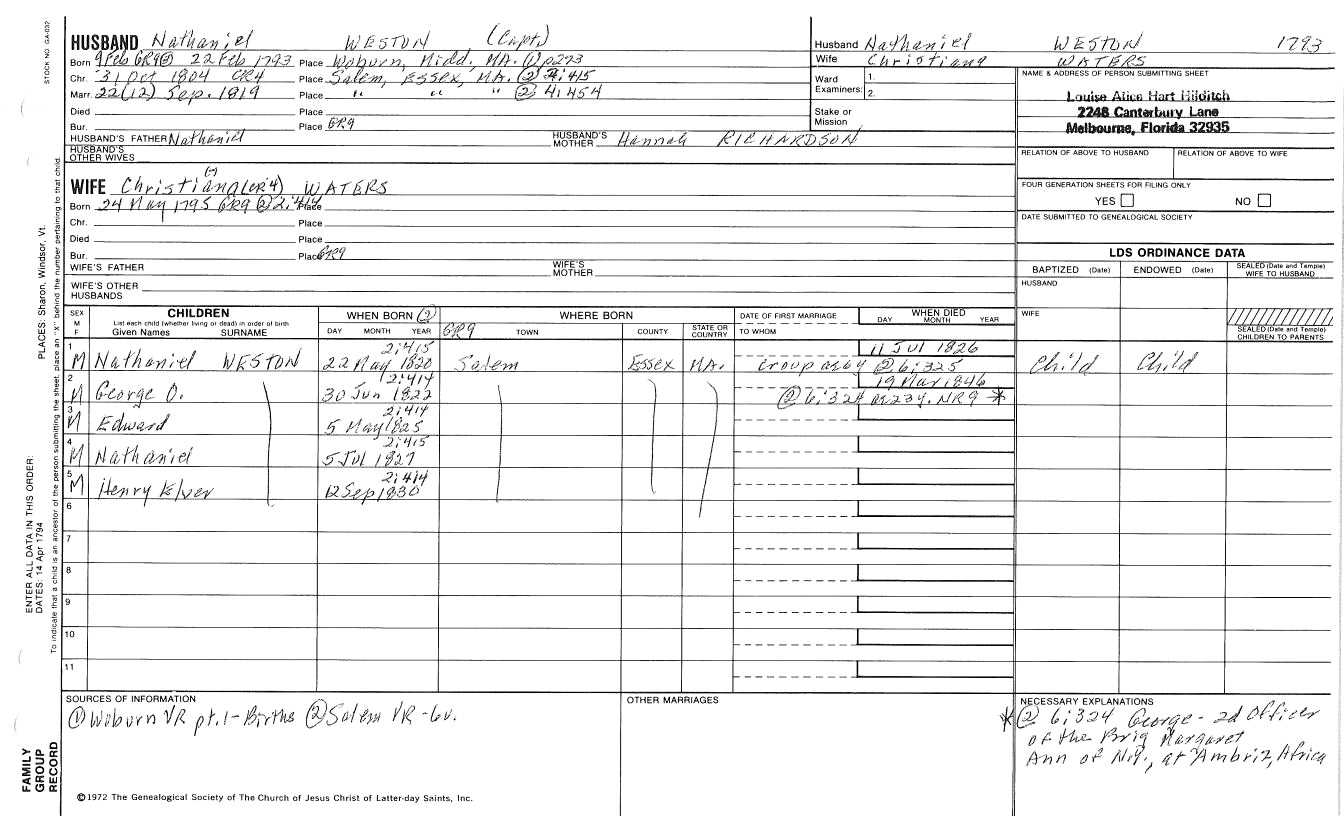 STOCK NO. GA-032
HUSBAND Nathaniel WESTON (Capt)
Born 9 Feb GR9 22 Feb 1793 Place Woburn, Midd. MA. (1) p273
Chr. 31 Oct 1804 CR4 Place Salem, Essex, MA. (2) 2:415
Marr. 22(12) Sep. 1819 Place " " " (2) 4:454
Died Place
Bur. Place GR9
HUSBAND'S FATHER Nathaniel HUSBAND'S MOTHER Hannah RICHARDSON
HUSBAND'S OTHER WIVES
Husband Nathaniel WESTON 1793
Wife Christiana WATERS
Ward 1.
Examiners: 2.
Stake or Mission
NAME & ADDRESS OF PERSON SUBMITTING SHEET
Louise Alice Hart Hilditch
2248 Canterbury Lane
Melbourne, Florida 32935
RELATION OF ABOVE TO HUSBAND RELATION OF ABOVE TO WIFE
FOUR GENERATION SHEETS FOR FILING ONLY
YES NO
DATE SUBMITTED TO GENEALOGICAL SOCIETY
WIFE Christian(-)(CR4) WATERS
Born 24 May 1795 GR9 (2) 2:414 Place
Chr. Place
Died Place
Bur. Place GR9
WIFE'S FATHER WIFE'S MOTHER
WIFE'S OTHER HUSBANDS
LDS ORDINANCE DATA
BAPTIZED (Date) ENDOWED (Date) SEALED (Date and Temple) WIFE TO HUSBAND
HUSBAND
WIFE
SEALED (Date and Temple) CHILDREN TO PARENTS
SEX M F CHILDREN WHEN BORN (2) WHERE BORN DATE OF FIRST MARRIAGE WHEN DIED
List each child (whether living or dead) in order of birth
Given Names SURNAME DAY MONTH YEAR GR9 TOWN COUNTY STATE OR COUNTRY TO WHOM DAY MONTH YEAR
2:415 11 Jul 1826
1 M Nathaniel WESTON 22 May 1820 Salem Essex MA. croup a6y (2) 6:325 Child Child
2:414 19 Mar 1846
2 M George O. 30 Jun 1822 (2) 6:324 a23y. NR9 *
2:414
3 M Edward 5 May 1825
2:415
4 M Nathaniel 5 Jul 1827
2:414
5 M Henry Elver 12 Sep 1830
6
7
8
9
10
11
SOURCES OF INFORMATION
(1) Woburn VR pt. 1-Births (2) Salem VR-6v.
OTHER MARRIAGES
NECESSARY EXPLANATIONS
* (2) 6:324 George - 2d Officer
of the Brig Margaret
Ann of N.Y., at Ambriz, Africa
©1972 The Genealogical Society of The Church of Jesus Christ of Latter-day Saints, Inc.
FAMILY GROUP RECORD
ENTER ALL DATA IN THIS ORDER:
DATES: 14 Apr 1794
PLACES: Sharon, Windsor, Vt.
To indicate that a child is an ancestor of the person submitting the sheet, place an "X" behind the number pertaining to that child.